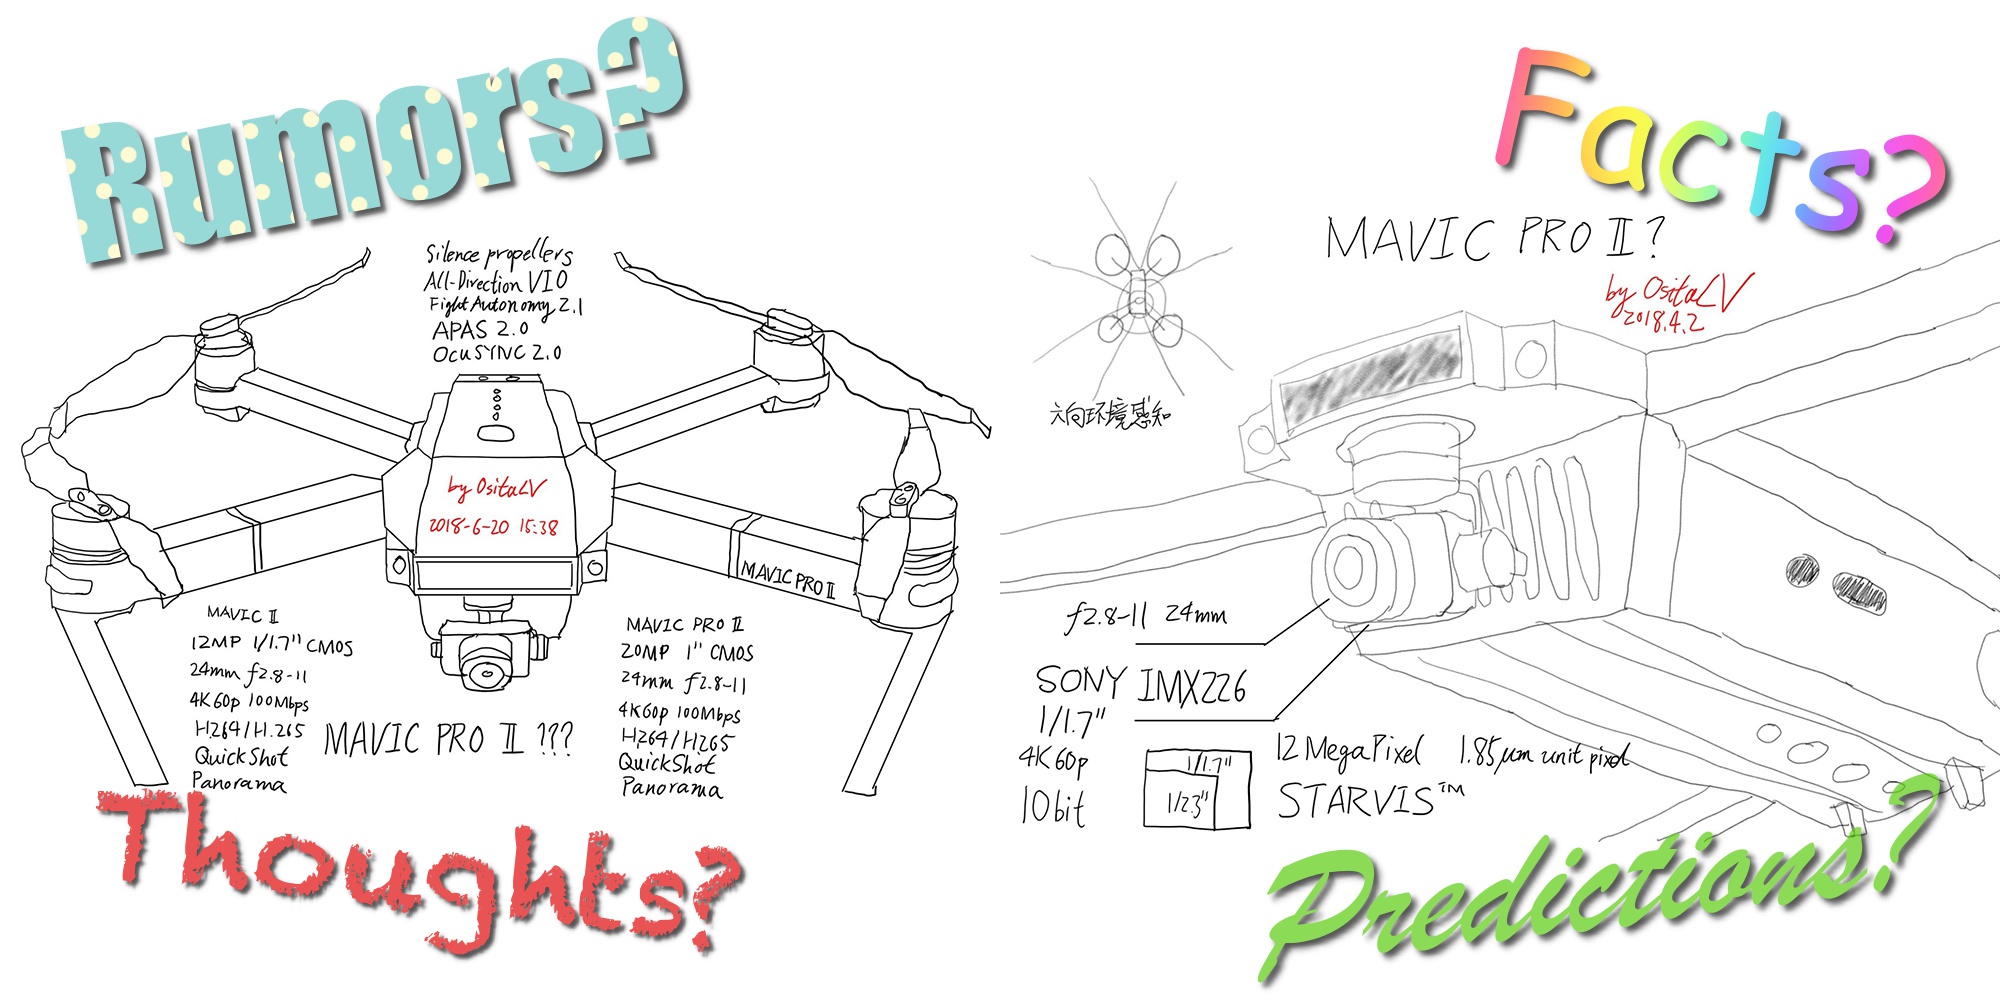 Rumors?
Silence propellers
All-Direction VIO
Fight Autonomy 2.1
APAS 2.0
OcuSYNC 2.0
by OsitaLV
2018-6-20 15:38
MAVIC PRO II
MAVIC II
12MP 1/1.7" CMOS
24mm f2.8-11
4K60p 100Mbps
H.264/H.265
QuickShot
Panorama
MAVIC PRO II ???
MAVIC PRO II
20MP 1" CMOS
24mm f2.8-11
4K60p 100Mbps
H.264/H265
QuickShot
Panorama
Thoughts?
Facts?
MAVIC PRO II?
by OsitaLV
2018.4.2
六向环境感知
f2.8-11 24mm
SONY IMX226
1/1.7"
4K60p
10bit
1/1.7"
1/2.3"
12 MegaPixel 1.85μm unit pixel
STARVIS™
Predictions?